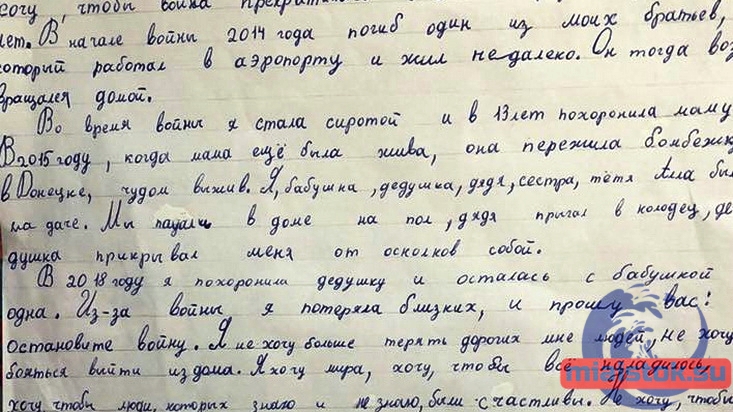 хочу, чтобы война прекрати
лет. В начале войны 2014 года погиб один из моих братьев,
который работал в аэропорту и жил недалеко. Он тогда воз
вращался домой.
Во время войны я стала сиротой и в 13 лет похоронила маму
В 2015 году, когда мама ещё была жива, она пережила бомбежку
в Донецке, чудом выжив. Я, бабушка, дедушка, дядя, сестра, тётя Алла был
на даче. Мы падали в доме на пол, дядя прыгал в колодец, де
душка прикрывал меня от осколков собой.
В 2018 году я похоронила дедушку и осталась с бабушкой
одна. Из-за войны я потеряла близких, и прошу вас:
остановите войну. Я не хочу больше терять дорогих мне людей, не хочу
бояться выйти из дома. Я хочу мира, хочу, чтобы всё наладилось,
хочу, чтобы люди, которых знаю и не знаю, были счастливы. Не хочу, чтобы
miaistok.su